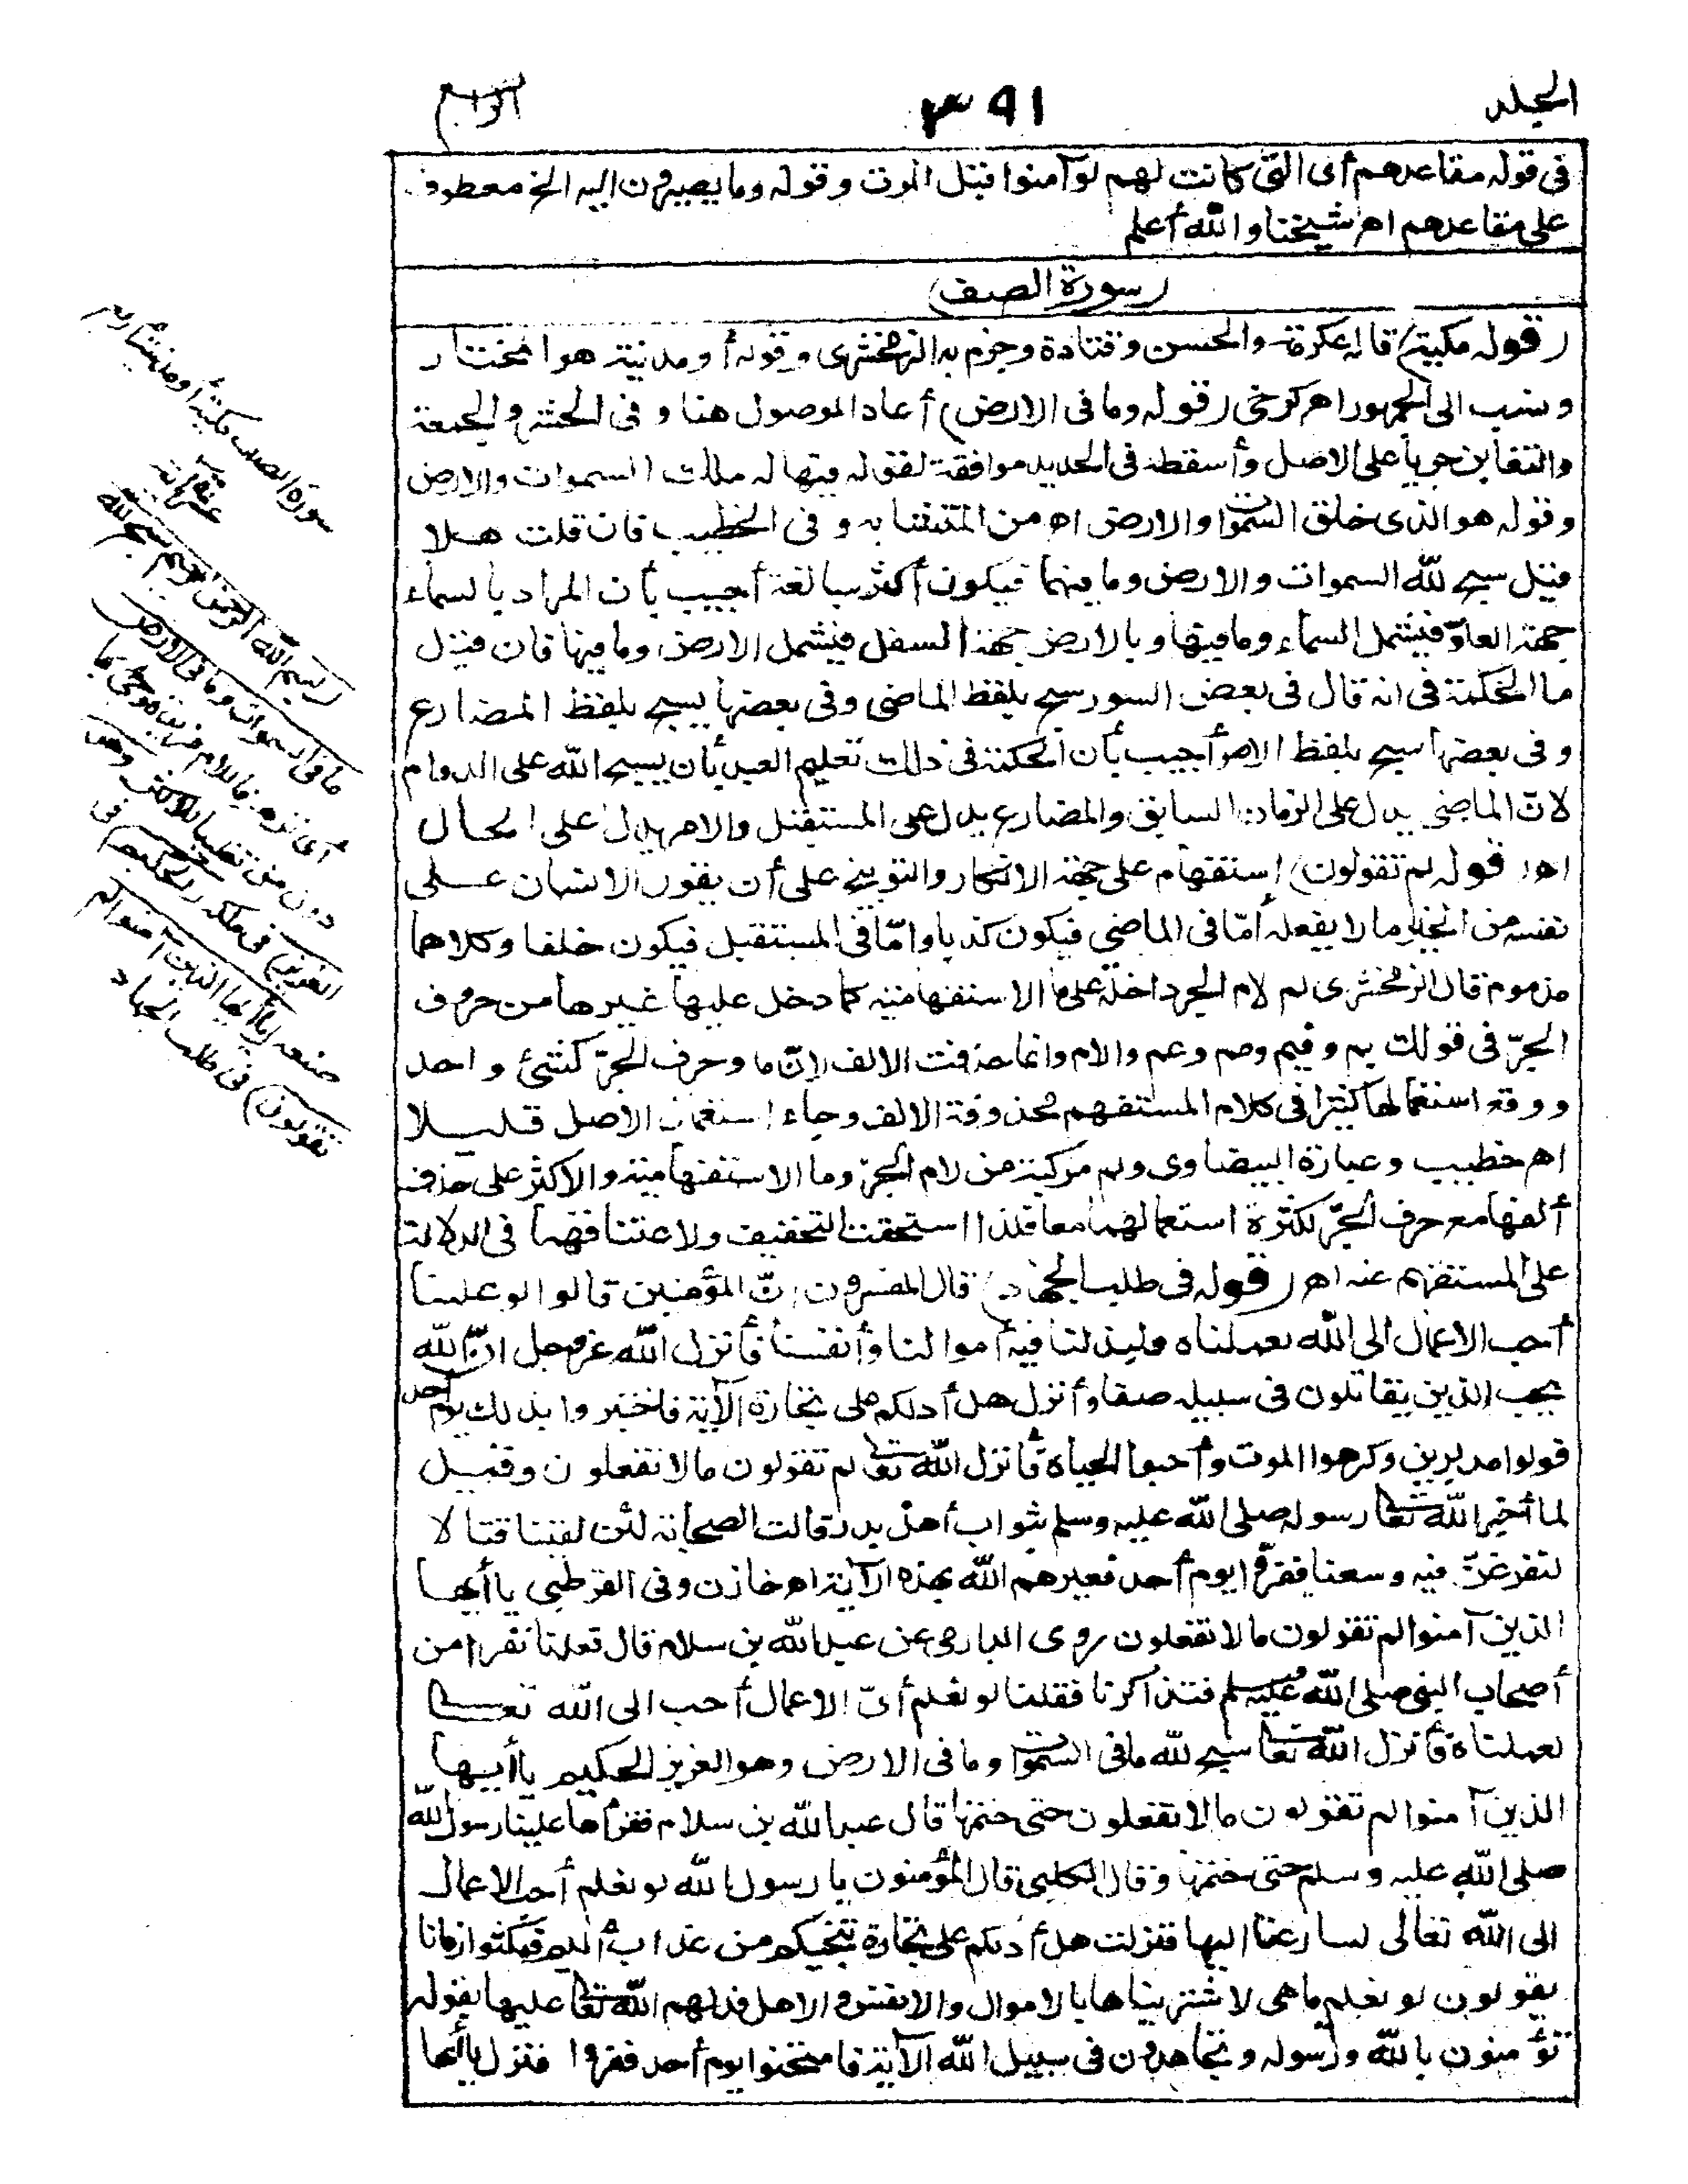 الجلد ٣٩١ الرابع
فى قوله مقاعدهم أى التى كانت لهم لو آمنوا قبل الموت وقوله وما يصيرون اليه الخ معطوف
على مقاعدهم اه شيخنا والله أعلم
(سورة الصف)
(قوله مكية) قاله عكرمة والحسن وقتادة وجزم به الزمخشرى وقوله أو مدنية هو المختار
ونسب الى الجمهور اه كرخى (قوله وما فى الارض) أعاد الموصول هنا وفى الحشر والجمعة
والتغابن جريا على الاصل وأسقطه فى الحديد موافقة لقوله فيها له ملك السموات والارض
وقوله هو الذى خلق السموات والارض اه من المتشابه وفى الخطيب فان قلت هلا
قيل سبح لله السموات والارض وما فيهما فيكون أكثر مبالغة أجيب بأن المراد بالسماء
جهة العلوّ فيشمل السماء وما فيها وبالارض جهة السفل فيشمل الارض وما فيها فان قيل
ما الحكمة فى انه قال فى بعض السور سبح بلفظ الماضى وفى بعضها يسبح بلفظ المضارع
وفى بعضها سبح بلفظ الامر أجيب بأن الحكمة فى ذلك تعليم العبد بأن يسبح الله على الدوام
لانّ الماضى يدل على الزمان السابق والمضارع يدل على المستقبل والامر يدل على الحال
اه (قوله لم تقولون) استفهام على جهة الانكار والتوبيخ على أن يقول الانسان عــلى
نفسه من الخير ما لا يفعله أمّا فى الماضى فيكون كذبا وامّا فى المستقبل فيكون خلفا وكلاهما
مذموم قال الزمخشرى لم لام الجر داخلة على ما الاستفهامية كما دخل عليها غيرها من حروف
الجرّ فى قولك بم وفيم ومم وعم والام وانما حذفت الالف لانّ ما وحرف الجرّ كشئ واحد
ووقع استعمالها كثيرا فى كلام المستفهم محذوفة الالف وجاء استعمال الاصل قليــلا
اه خطيب وعبارة البيضاوى ولم مركبة من لام الجرّ وما الاستفهامية والاكثر على حذف
ألفها مع حرف الجرّ لكثرة استعمالهما معا فلذا استحقت التخفيف ولاعتناقهما فى الدلالة
على المستفهم عنه اه (قوله فى طلب الجهاد) قال المفسرون انّ المؤمنين قالوا لو علمنا
أحب الاعمال الى الله لعملناه ولبذلنا فيه أموالنا وأنفسنا فأنزل الله عز وجل انّ الله
يحب الذين يقاتلون فى سبيله صفا وأنزل هل أدلكم على تجارة الآية فاختبروا بذلك يوم أحد
فولوا مدبرين وكرهوا الموت وأحبوا الحياة فأنزل الله تعا لم تقولون ما لا تفعلون وقيــل
لما أخبر الله تعا رسوله صلى الله عليه وسلم بثواب أهل بدر قالت الصحابة لئن لقينا قتالا
لنفرغنّ فيه وسعنا ففرّوا يوم أحد فعيرهم الله بهذه الآية اه خازن وفى القرطبى يا أيها
الذين آمنوا لم تقولون ما لا تفعلون روى الدارمى عن عبد الله بن سلام قال قعدنا نفرا من
أصحاب النبى صلى الله عليه وسلم فتذاكرنا فقلنا لو نعلم أىّ الاعمال أحب الى الله تعا
لعملناه فأنزل الله تعا سبح لله ما فى السموات وما فى الارض وهو العزيز الحكيم يا أيها
الذين آمنوا لم تقولون ما لا تفعلون حتى ختمها قال عبد الله بن سلام فقرأها علينا رسول الله
صلى الله عليه وسلم حتى ختمها وقال الكلبى قال المؤمنون يا رسول الله لو نعلم أحب الاعمال
الى الله تعالى لسارعنا اليها فنزلت هل أدلكم على تجارة تنجيكم من عذاب أليم فمكثوا زمانا
يقولون لو نعلم ما هى لاشتريناها بالاموال والانفس والاهل فدلهم الله تعا عليها بقوله
تؤمنون بالله ورسوله وتجاهدون فى سبيل الله الآية فامتحنوا يوم أحد ففروا فنزل يا أيها
سورة الصف مكية أو مدنية أربع
عشرة آية
(بسم الله الرحمن الرحيم سبح لله
ما فى السموات وما فى الارض)
أى نزهه فاللام مزيدة وجئ بما
دون من تغليبا للاكثر (وهو
العزيز) فى ملكه (الحكيم) فى
صنعه (يا أيها الذين آمنوا لم
تقولون) فى طلب الجهاد